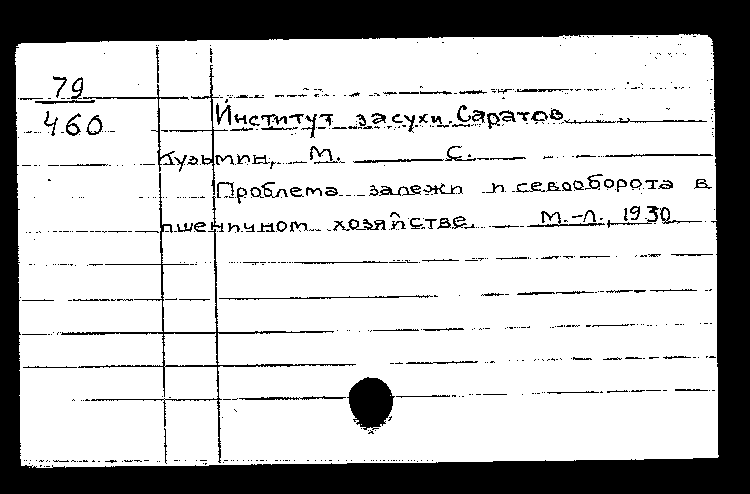 79
460
Институт засухи. Саратов
Кузьмин, М. С.
Проблема залежи и севооборота в
пшеничном хозяйстве. М.-Л., 1930